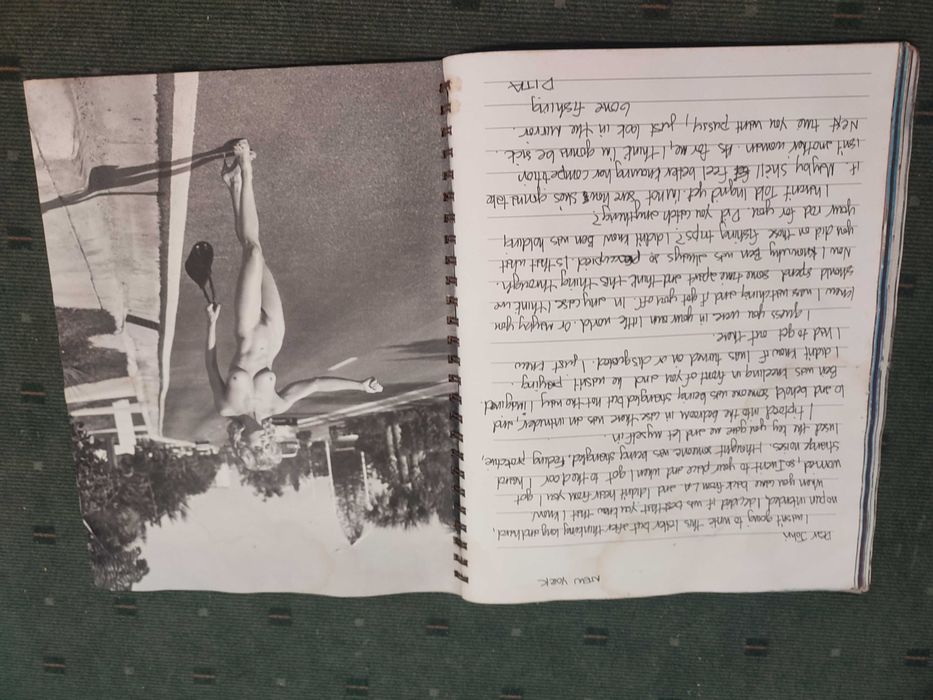 NEW YORK
Dear John,
I wasn't going to write this letter but after thinking long and hard,
no pun intended, I decided it was best that you knew that I know.
when you came back from L.A. and I didn't hear from you I got
worried so I went to your place and when I got to the door I heard
strange noises. I thought someone was being strangled. Feeling protective,
I used the key you gave me and let myself in.
I tiptoed into the bedroom in case there was an intruder, and
lo and behold someone was being strangled but not the way I imagined.
Ben was kneeling in front of you and he wasn't praying.
I didn't know if I was turned on or disgusted. I just knew
I had to get out there.
I guess you were in your own little world. Or maybe you
knew I was watching and it got you off. In any case I think we
should spend some time apart and think this thing through.
Now I know why Ben was always so preoccupied. Is that what
you did on those fishing trips? I didn't know Ben was holding
your rod for you. Did you catch anything?
I haven't told Ingrid yet. I'm not sure how she's gonna take
it. Maybe she'll feel better knowing her competition
isn't another woman. As for me, I think I'm gonna be sick.
Next time you want pussy, just look in the mirror.
Gone fishing
DITA